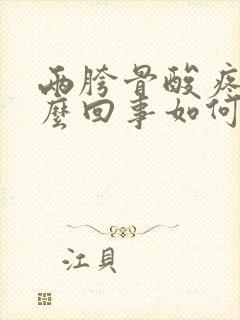 两胯骨酸疼
麽回事如何
江貝